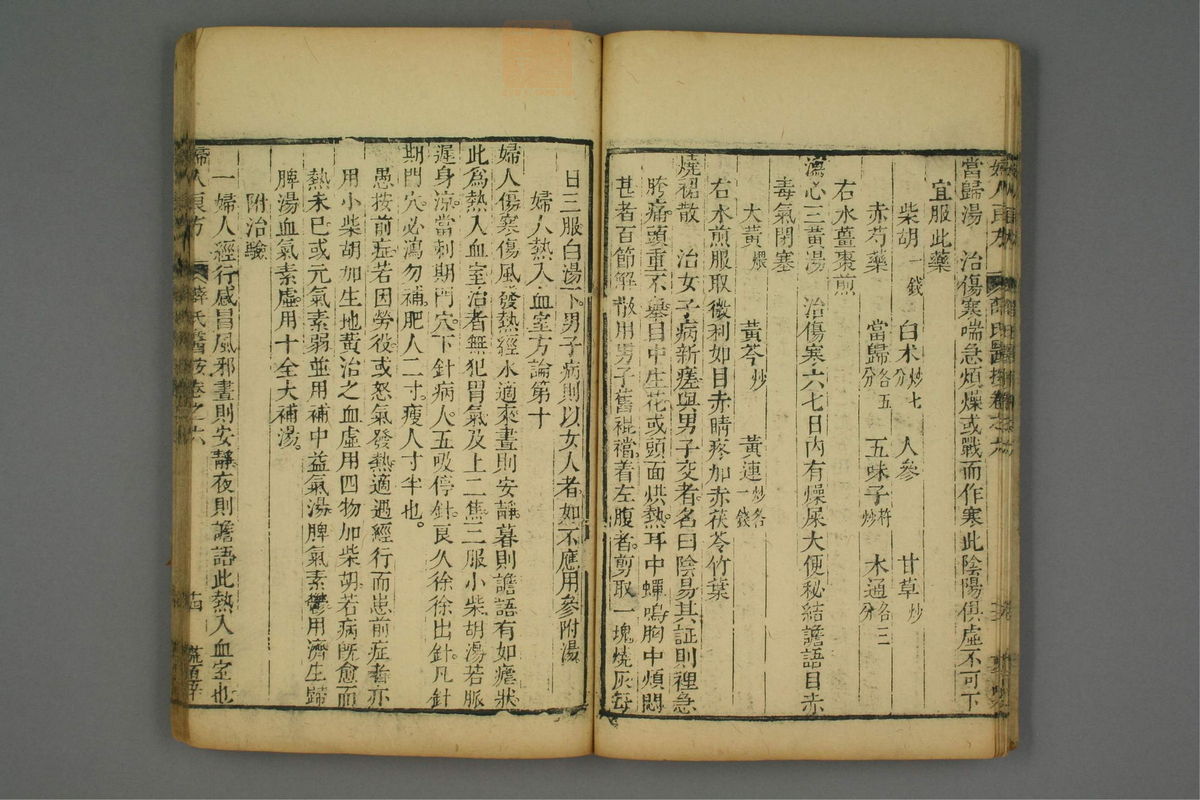 當歸湯　治傷寒喘急煩燥或戰而作寒此陰陽俱虛不可下
宜服此藥
柴胡一錢　白朮炒七分　人參　甘草炒
赤芍藥　當歸各五分　五味子杵炒　木通各二分
右水薑棗煎
瀉心三黃湯　治傷寒六七日內有燥屎大便秘結譫語目赤
毒氣閉塞
大黃煨　黃芩炒　黃連炒各一錢
右水煎服取微利如目赤睛疼加赤茯苓竹葉
燒裙散　治女子病新瘥與男子交者名曰陰易其証則裡急
胯痛頭重不舉目中生花或頭面烘熱耳中蟬鳴胸中煩悶
甚者百節解散用男子舊裩襠著左腹者剪取一塊燒灰每
日三服白湯下男子病則以女人者如不應用參附湯
婦人熱入血室方論第十
婦人傷寒傷風發熱經水適來晝則安靜暮則譫語有如瘧狀
此為熱入血室治者無犯胃氣及上二焦三服小柴胡湯若脈
遲身涼當刺期門穴下針病人五吸停針良久徐徐出針凡針
期門穴必瀉勿補肥人二寸瘦人寸半也
愚按前症若因勞役或怒氣發熱適遇經行而患前症者亦
用小柴胡加生地黃治之血虛用四物加柴胡若病旣愈而
熱未已或元氣素弱並用補中益氣湯脾氣素鬱用濟生歸
脾湯血氣素虛用十全大補湯
附治驗
一婦人經行感冒風邪晝則安靜夜則譫語此熱入血室也
婦人良方　薛氏醫按卷之六